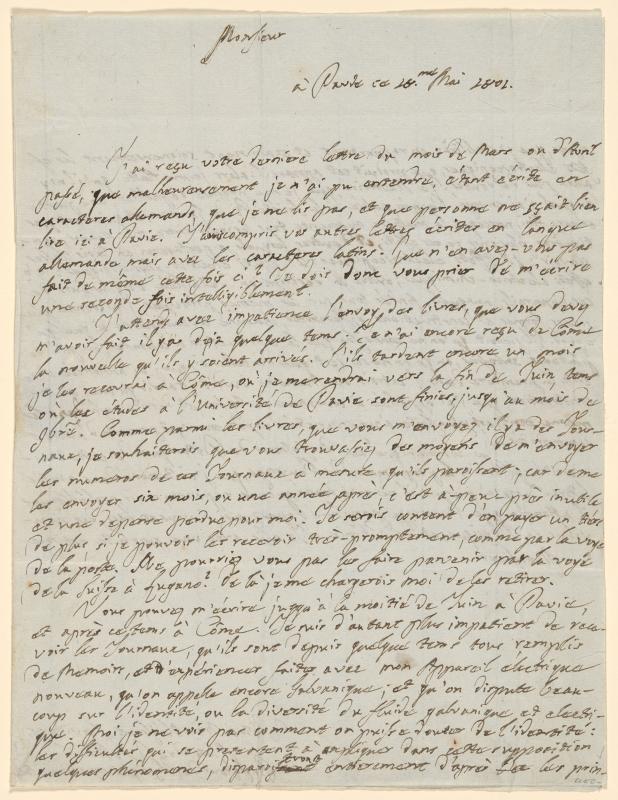 Monsieur
à Pavie ce 18.me Mai 1801.
J'ai reçu votre derniere lettre du mois de Mars ou d'Avril
passé, que malheureusement je n'ai pu entendre, étant écrite en
caracteres allemands, que je ne lis pas, et que personne ne sçait bien
lire ici à Pavie. J'ai compris vos autres lettres écrites en langue
allemande mais avec les caracteres latins. Que n'en avez-vous pas
fait de même cette fois ci? Je dois donc vous prier de m'écrire
une seconde fois intelligiblement.
J'attens avec impatience l'envoy des livres, que vous devez
m'avoir fait il y a deja quelque tems. Je n'ai encore reçu de Côme
la nouvelle qu'ils y soient arrivés. S'ils tardent encore un mois
je les recevrai à Côme, où je me rendrai vers la fin de Juin tems
où les études à l'Université de Pavie sont finies, jusqu'au mois de
9bre. Comme parmi les livres, que vous m'envoyez il y a des Jour-
naux, je souhaiterois que vous trouvasiez des moyens de m'envoyer
les numeros de ces Journaux à mesure qu'ils paroissent; car de me
les envoyer six mois, ou une année après, c'est à-peu-près inutile
et une depense perdue pour moi. Je serois content d'en payer un tiers
de plus si je pouvois les recevoir très-promptement, comme par la voye
de la poste. Ne pourriez vous pas les faire parvenir par la voye
de la Suisse à Lugano? De là je me chargerois moi de les retirer.
Vous pouvez m'écrire jusqu'à la moitié de Juin à Pavie,
et après ce tems à Côme. Je suis d'autant plus impatient de rece-
voir les Journaux, qu'ils sont depuis quelque tems tous remplis
de Memoirs, et d'expériences faites avec mon Appareil electrique
nouveau, qu'on appelle encore Galvanique; et qu'on dispute beau-
coup sur l'identité, ou la diversité du fluide galvanique et electri-
que. Moi je ne vois pas comment on puisse douter de l'identité:
les difficultés qui se presentent à expliquer dans cette supposition
quelques phénomenes, disparoitront entierement d'après les prin-